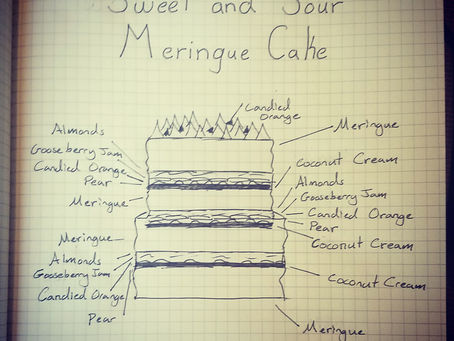 Sweet and Sour
Meringue Cake
Candied
Orange
Almonds
Gooseberry Jam
Candied Orange
Pear
Meringue
Meringue
Coconut Cream
Almonds
Gooseberry Jam
Candied Orange
Pear
Coconut Cream
Meringue
Almonds
Gooseberry Jam
Candied Orange
Pear
Coconut Cream
Meringue